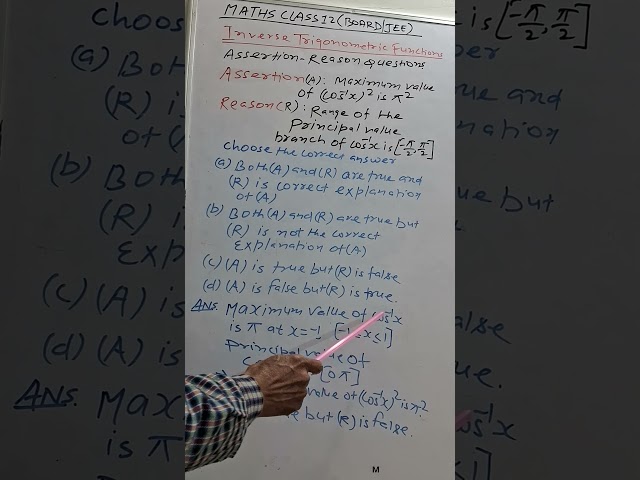 MATHS CLASS 12 (BOARD/JEE)
Inverse Trigonometric Functions
Assertion-Reason Questions
Assertion(A): Maximum value
of (cos⁻¹x)² is π²
Reason(R): Range of the
Principal value
branch of cos⁻¹x is [-π/2, π/2]
choose the correct answer
(a) Both(A) and (R) are true and
(R) is correct explanation
of(A)
(b) Both(A) and (R) are true but
(R) is not the correct
Explanation of(A)
(c) (A) is true but (R) is false
(d) (A) is false but (R) is true.
Ans. Maximum value of cos⁻¹x
is π at x=-1 [-1≤x≤1]
Principal value of
[0 π]
value of (cos⁻¹x)² is π²
but (R) is false.
M